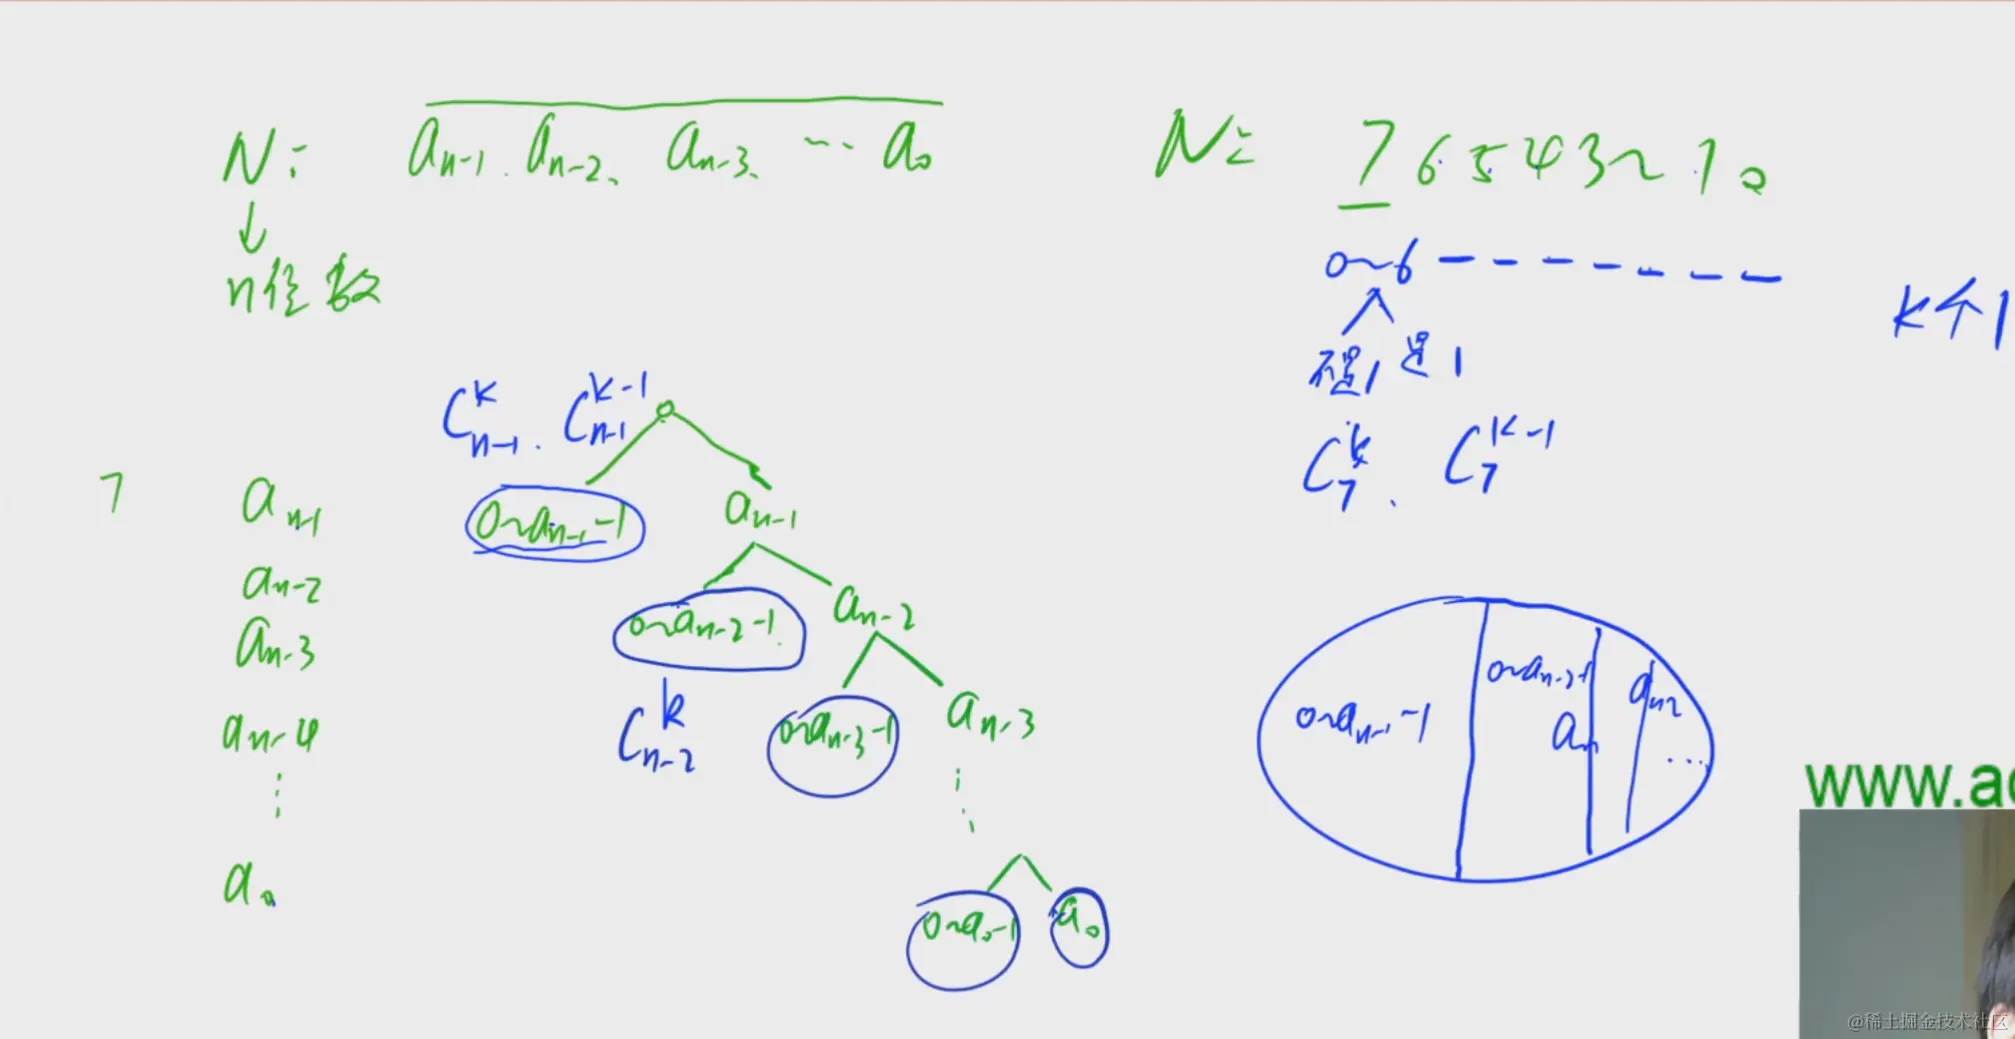 N: a_{n-1}, a_{n-2}, a_{n-3}, ... a_0
N: 7 6 5 4 3 2 1 0
n位数
0~6 - - - - - - -
k个1
不是1 是1
C_{n-1}^{k} . C_{n-1}^{k-1}
C_7^k 、 C_7^{k-1}
7 a_{n-1} 0~a_{n-1}-1 a_{n-1}
a_{n-2} 0~a_{n-2}-1 a_{n-2}
a_{n-3}
C_{n-2}^{k} 0~a_{n-3}-1 a_{n-3}
a_{n-4}
a_0 0~a_0-1 a_0
0~a_{n-1}-1 a_{n-2} ...
www.ac
@稀土掘金技术社区